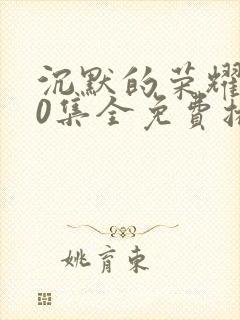 沉默的荣耀
0集全免费
姚育东